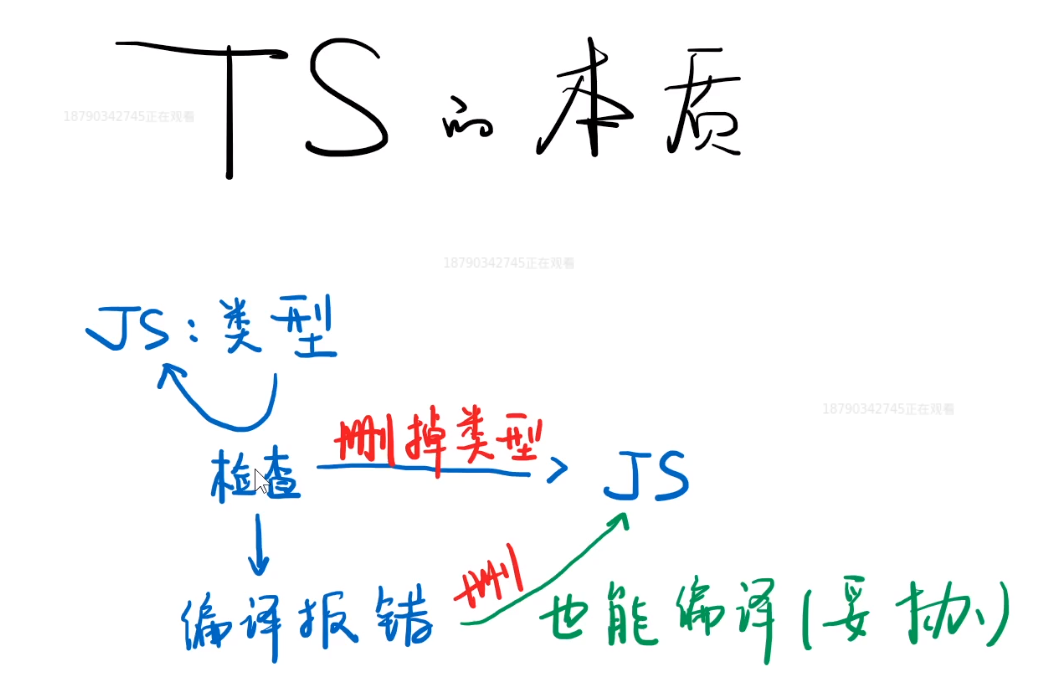 TS的本质
18790342745正在观看
18790342745正在观看
JS:类型
18790342745正在观看
删掉类型
检查
JS
删
编译报错
也能编译(妥协)